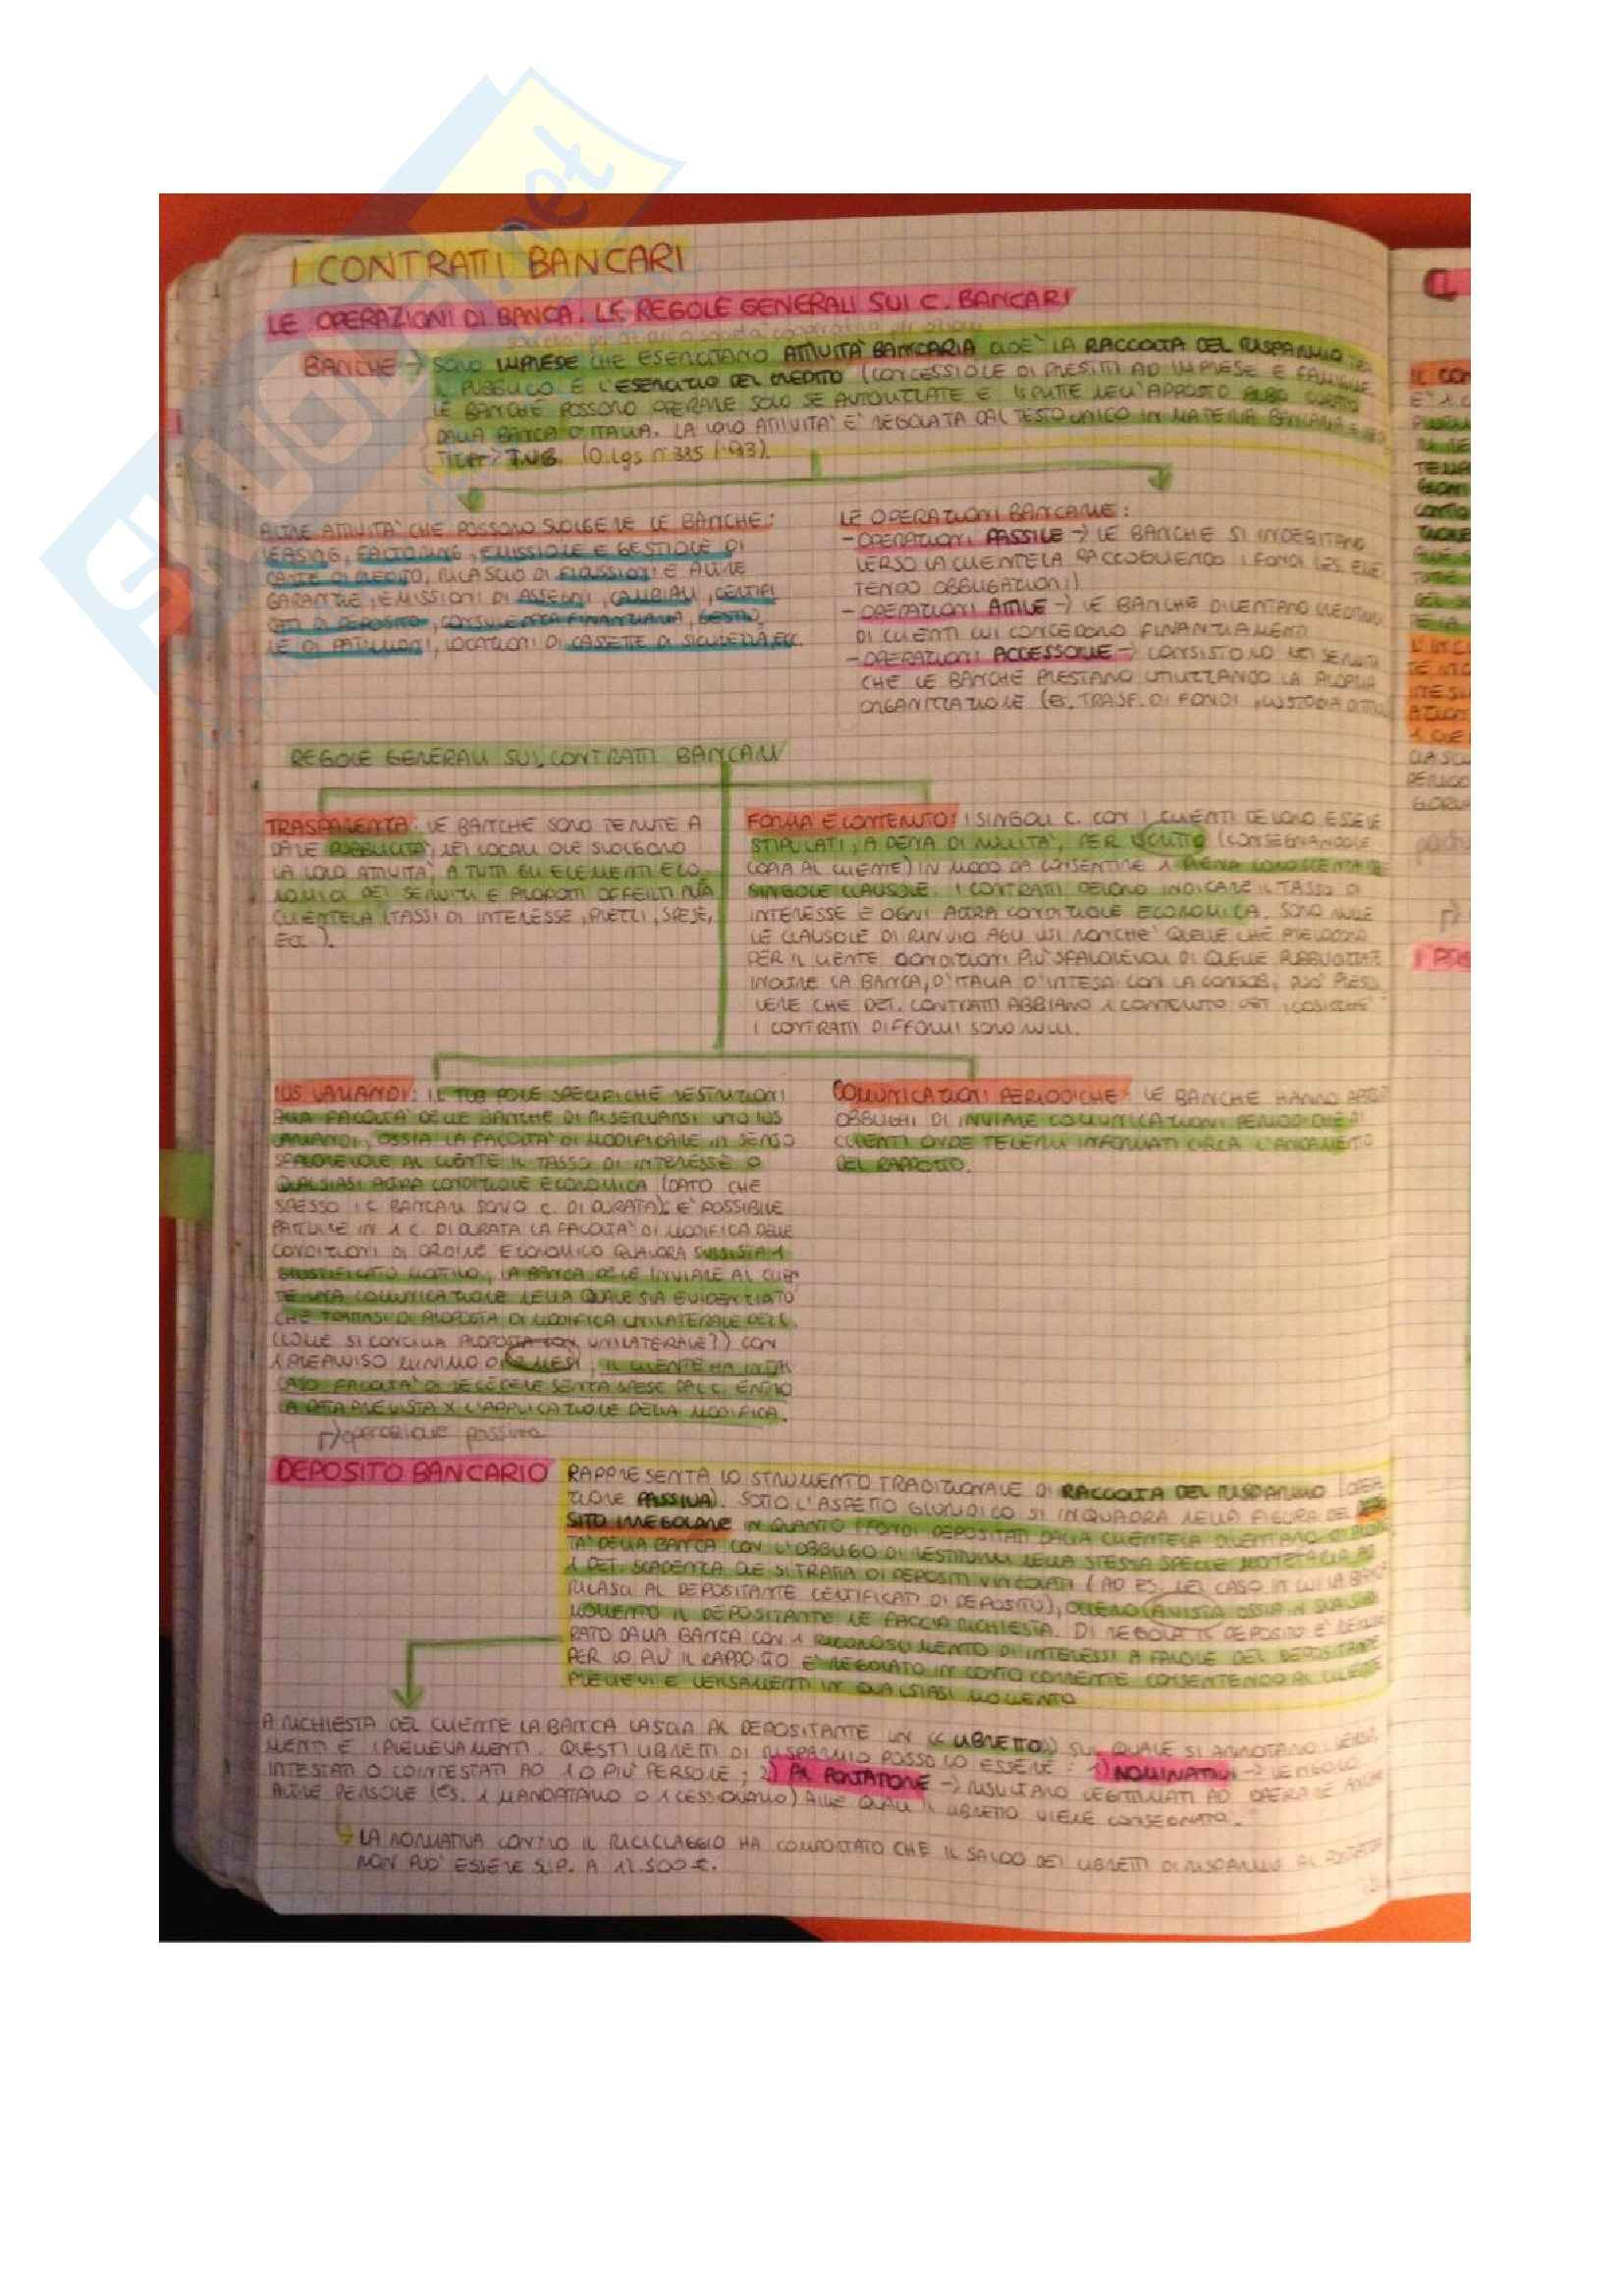 SKUOLA.net
I CONTRATTI BANCARI
LE OPERAZIONI DI BANCA. LE REGOLE GENERALI SUI C. BANCARI
BANCHE → SONO IMPRESE CHE ESERCITANO ATTIVITÀ BANCARIA CIOÈ LA RACCOLTA DEL RISPARMIO TRA
IL PUBBLICO E L'ESERCIZIO DEL CREDITO (CONCESSIONE DI PRESTITI AD IMPRESE E FAMIGLIE
LE BANCHE POSSONO OPERARE SOLO SE AUTORIZZATE E ISCRITTE NELL'APPOSITO ALBO CURATO
DALLA BANCA D'ITALIA. LA LORO ATTIVITÀ È REGOLATA DAL TESTO UNICO IN MATERIA BANCARIA E CRE
DITIZIA → T.U.B. (D.lgs n°385/'93).
ALTRE ATTIVITÀ CHE POSSONO SVOLGERE LE BANCHE:
LEASING, FACTORING, EMISSIONE E GESTIONE DI
CARTE DI CREDITO, RILASCIO DI FIDEIUSSIONI E ALTRE
GARANZIE, EMISSIONI DI ASSEGNI, CAMBIALI, CERTIFI
CATI DI DEPOSITO, CONSULENZA FINANZIARIA, GESTIO
NE DI PATRIMONI, LOCAZIONI DI CASSETTE DI SICUREZZA, ECC.
LE OPERAZIONI BANCARIE:
- OPERAZIONI PASSIVE → LE BANCHE SI INDEBITANO
VERSO LA CLIENTELA RACCOGLIENDO I FONDI (ES. EMET
TENDO OBBLIGAZIONI)
- OPERAZIONI ATTIVE → LE BANCHE DIVENTANO CREDITRICI
DI CLIENTI CUI CONCEDONO FINANZIAMENTI
- OPERAZIONI ACCESSORIE → CONSISTONO NEI SERVIZI
CHE LE BANCHE PRESTANO UTILIZZANDO LA PROPRIA
ORGANIZZAZIONE (ES. TRASF. DI FONDI, CUSTODIA DI TITOLI
REGOLE GENERALI SUI CONTRATTI BANCARI
TRASPARENZA: LE BANCHE SONO TENUTE A
DARE PUBBLICITÀ, NEI LOCALI OVE SVOLGONO
LA LORO ATTIVITÀ, A TUTTI GLI ELEMENTI ECO
NOMICI DEI SERVIZI E PRODOTTI OFFERTI ALLA
CLIENTELA (TASSI DI INTERESSE, PREZZI, SPESE,
ECC.).
FORMA E CONTENUTO: I SINGOLI C. CON I CLIENTI DEVONO ESSERE
STIPULATI, A PENA DI NULLITÀ, PER ISCRITTO (CONSEGNANDONE
COPIA AL CLIENTE) IN MODO DA CONSENTIRE 1 PIENA CONOSCENZA DE
SINGOLE CLAUSOLE. I CONTRATTI DEVONO INDICARE IL TASSO DI
INTERESSE E OGNI ALTRA CONDIZIONE ECONOMICA. SONO NULLE
LE CLAUSOLE DI RINVIO AGLI USI NONCHÈ QUELLE CHE PREVEDONO
PER IL CLIENTE CONDIZIONI PIÙ SFAVOREVOLI DI QUELLE PUBBLICIZZATE
INOLTRE LA BANCA D'ITALIA D'INTESA CON LA CONSOB, PUÒ PRESCRI
VERE CHE DET. CONTRATTI ABBIANO 1 CONTENUTO DET., COSICCHÈ
I CONTRATTI DIFFORMI SONO NULLI.
IUS VARIANDI: IL TUB PONE SPECIFICHE RESTRIZIONI
ALLA FACOLTÀ DELLE BANCHE DI RISERVARSI UNO IUS
VARIANDI, OSSIA LA FACOLTÀ DI MODIFICARE IN SENSO
SFAVOREVOLE AL CLIENTE IL TASSO DI INTERESSE O
QUALSIASI ALTRA CONDIZIONE ECONOMICA (DATO CHE
SPESSO I C. BANCARI SONO C. DI DURATA): È POSSIBILE
PATTUIRE IN 1 C. DI DURATA LA FACOLTÀ DI MODIFICA DELLE
CONDIZIONI DI ORDINE ECONOMICO QUALORA SUSSISTA 1
GIUSTIFICATO MOTIVO, LA BANCA DEVE INVIARE AL CLIEN
TE UNA COMUNICAZIONE NELLA QUALE SIA EVIDENZIATO
CHE TRATTASI DI PROPOSTA DI MODIFICA UNILATERALE DEL C.
(COME SI CONCILIA PROPOSTA CON UNILATERALE?) CON
1 PREAVVISO MINIMO DI 2 MESI, IL CLIENTE HA IN TAL
CASO FACOLTÀ DI RECEDERE SENZA SPESE DAL C. ENTRO
LA DATA PREVISTA X L'APPLICAZIONE DELLA MODIFICA.
COMUNICAZIONI PERIODICHE: LE BANCHE HANNO APPOSITI
OBBLIGHI DI INVIARE COMUNICAZIONI PERIODICHE AI
CLIENTI ONDE TENERLI INFORMATI CIRCA L'ANDAMENTO
DEL RAPPORTO.
operazione passiva
DEPOSITO BANCARIO
RAPPRESENTA LO STRUMENTO TRADIZIONALE DI RACCOLTA DEL RISPARMIO (OPERA
ZIONE PASSIVA). SOTTO L'ASPETTO GIURIDICO SI INQUADRA NELLA FIGURA DEL DEPO
SITO IRREGOLARE IN QUANTO I FONDI DEPOSITATI DALLA CLIENTELA DIVENTANO DI PROPRIE
TÀ DELLA BANCA CON L'OBBLIGO DI RESTITUIRLI NELLA STESSA SPECIE MONETARIA AD
1 DET. SCADENZA OVE SI TRATTA DI DEPOSITI VINCOLATI (AD ES. NEL CASO IN CUI LA BANCA
RILASCI AL DEPOSITANTE CERTIFICATI DI DEPOSITO), OVVERO A VISTA OSSIA IN QUALSIASI
MOMENTO IL DEPOSITANTE NE FACCIA RICHIESTA. DI REGOLA IL DEPOSITO È REMUNE
RATO DALLA BANCA CON 1 RICONOSCIMENTO DI INTERESSI A FAVORE DEL DEPOSITANTE
PER LO PIÙ IL RAPPORTO È REGOLATO IN CONTO CORRENTE CONSENTENDO AL CLIENTE
PRELIEVI E VERSAMENTI IN QUALSIASI MOMENTO
A RICHIESTA DEL CLIENTE LA BANCA LASCIA AL DEPOSITANTE UN "LIBRETTO" SUL QUALE SI ANNOTANO I VERSA
MENTI E I PRELEVAMENTI. QUESTI LIBRETTI DI RISPARMIO POSSONO ESSERE: 1) NOMINATIVI → VENGONO
INTESTATI O COINTESTATI AD 1 O PIÙ PERSONE; 2) AL PORTATORE → RISULTANO LEGITTIMATI AD OPERARE ANCHE
ALTRE PERSONE (ES. 1 MANDATARIO O 1 CESSIONARIO) ALLE QUALI IL LIBRETTO VIENE CONSEGNATO.
LA NORMATIVA CONTRO IL RICICLAGGIO HA COMPORTATO CHE IL SALDO DEI LIBRETTI DI RISPARMIO AL PORTATORE
NON PUÒ ESSERE SUP. A 12.500 €.